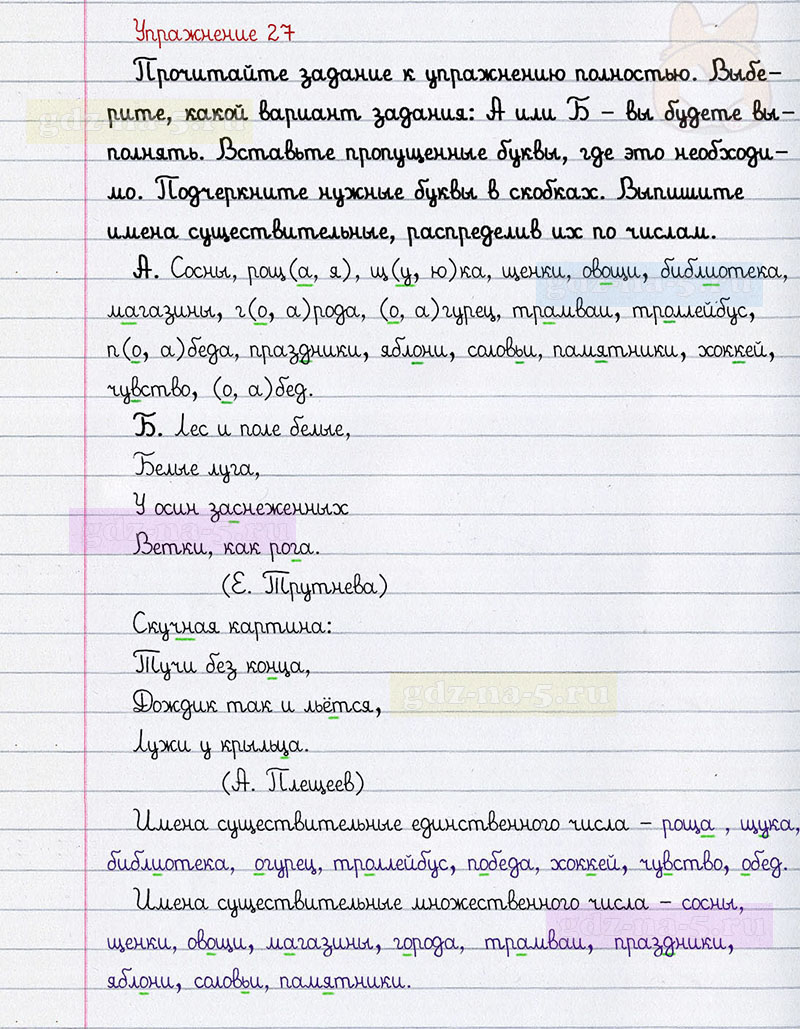 Упражнение 27
Прочитайте задание к упражнению полностью. Выбе-
рите, какой вариант задания: А или Б – вы будете вы-
gdz-na-5.ru
полнять. Вставьте пропущенные буквы, где это необходи-
мо. Подчеркните нужные буквы в скобках. Выпишите
имена существительные, распределив их по числам.
А. Сосны, рощ(а, я), щ(у, ю)ка, щенки, овощи, библиотека,
gdz-na-5.ru
магазины, г(о, а)рода, (о, а)гурец, трамваи, троллейбус,
п(о, а)беда, праздники, яблони, соловьи, памятники, хоккей,
чувство, (о, а)бед.
Б. Лес и поле белые,
Белые луга,
У осин заснеженных
gdz-na-5.ru
Ветки, как рога.
(Е. Трутнева)
Скучная картина:
Тучи без конца,
gdz-na-5.ru
Дождик так и льётся,
Лужи у крыльца.
(А. Плещеев)
Имена существительные единственного числа – роща , щука,
библиотека, огурец, троллейбус, победа, хоккей, чувство, обед.
Имена существительные множественного числа – сосны,
gdz-na-5.ru
щенки, овощи, магазины, города, трамваи, праздники,
яблони, соловьи, памятники.